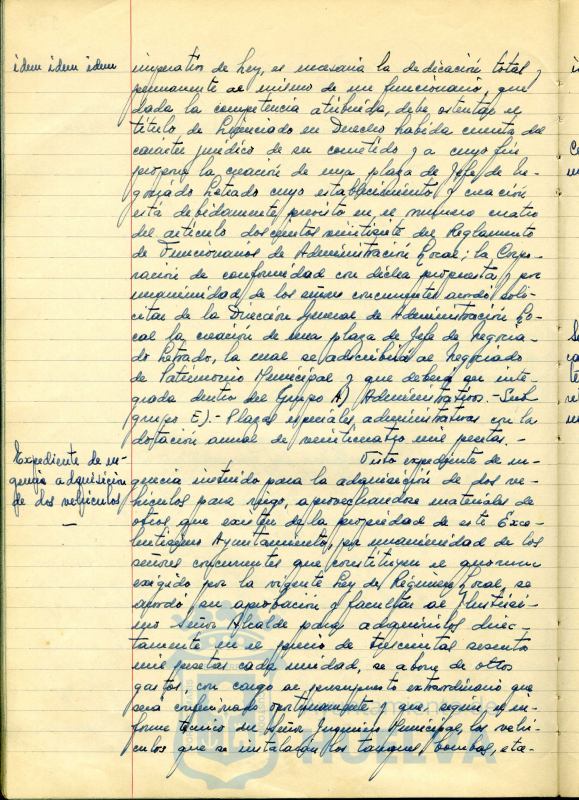 idem idem idem
imperativo de Ley, es necesaria la dedicación total y
permanente al mismo de un funcionario, que
dada la competencia atribuida, debe ostentar el
título de Licenciado en Derecho habida cuenta del
carácter jurídico de su cometido y a cuyo fin
propone la creación de una plaza de Jefe de Ne-
gociado Letrado cuyo establecimiento y creación
está debidamente previsto en el número cuatro
del artículo doscientos veintisiete del Reglamento
de Funcionarios de Administración Local; la Corpo-
ración de conformidad con dicha propuesta y por
unanimidad de los señores concurrentes acordó soli-
citar de la Dirección General de Administración Lo-
cal la creación de una plaza de Jefe de Negocia-
do Letrado, la cual se adscribirá al Negociado
de Patrimonio Municipal y que deberá ser inte-
grada dentro del Grupo A) Administrativos.- Sub
grupo E).- Plazas especiales administrativas con la
dotación anual de veinticuatro mil pesetas.-
Expediente de ur-
gencia adquisición
de dos vehículos
Visto expediente de ur-
gencia instruido para la adquisición de dos ve-
hículos para riego, aprovechándose materiales de
otros que existen de la propiedad de este Exce-
lentísimo Ayuntamiento, por unanimidad de los
señores concurrentes que constituyen el quorum
exigido por la vigente Ley de Régimen Local, se
acordó su aprobación y facultar al Ilustrísi-
mo Señor Alcalde para adquirirlos direc-
tamente en el precio de trescientas sesenta
mil pesetas cada unidad, se abone de otros
gastos, con cargo al presupuesto extraordinario que
será confeccionado oportunamente y que según el in-
forme técnico del Señor Ingeniero Municipal, los vehí-
culos que se instalarán los tanques bombas, eta-
HUELVA